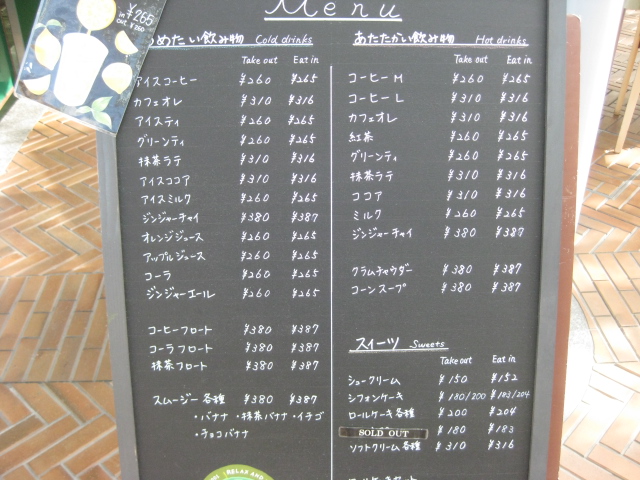 Menu
in ¥265
out ¥260
めたい飲み物 Cold drinks
Take out Eat in
アイスコーヒー ¥260 ¥265
カフェオレ ¥310 ¥316
アイスティ ¥260 ¥265
グリーンティ ¥260 ¥265
抹茶ラテ ¥310 ¥316
アイスココア ¥310 ¥316
アイスミルク ¥260 ¥265
ジンジャーチャイ ¥380 ¥387
オレンジジュース ¥260 ¥265
アップルジュース ¥260 ¥265
コーラ ¥260 ¥265
ジンジャーエール ¥260 ¥265
コーヒーフロート ¥380 ¥387
コーラフロート ¥380 ¥387
抹茶フロート ¥380 ¥387
スムージー各種 ¥380 ¥387
・バナナ・抹茶バナナ・イチゴ
・チョコバナナ
RELAX AND
あたたかい飲み物 Hot drinks
Take out Eat in
コーヒーM ¥260 ¥265
コーヒーL ¥310 ¥316
カフェオレ ¥310 ¥316
紅茶 ¥260 ¥265
グリーンティ ¥260 ¥265
抹茶ラテ ¥310 ¥316
ココア ¥310 ¥316
ミルク ¥260 ¥265
ジンジャーチャイ ¥380 ¥387
クラムチャウダー ¥380 ¥387
コーンスープ ¥380 ¥387
スイーツ Sweets
Take out Eat in
シュークリーム ¥150 ¥152
シフォンケーキ ¥180/200 ¥183/204
ロールケーキ各種 ¥200 ¥204
SOLD OUT ¥180 ¥183
ソフトクリーム各種 ¥310 ¥316